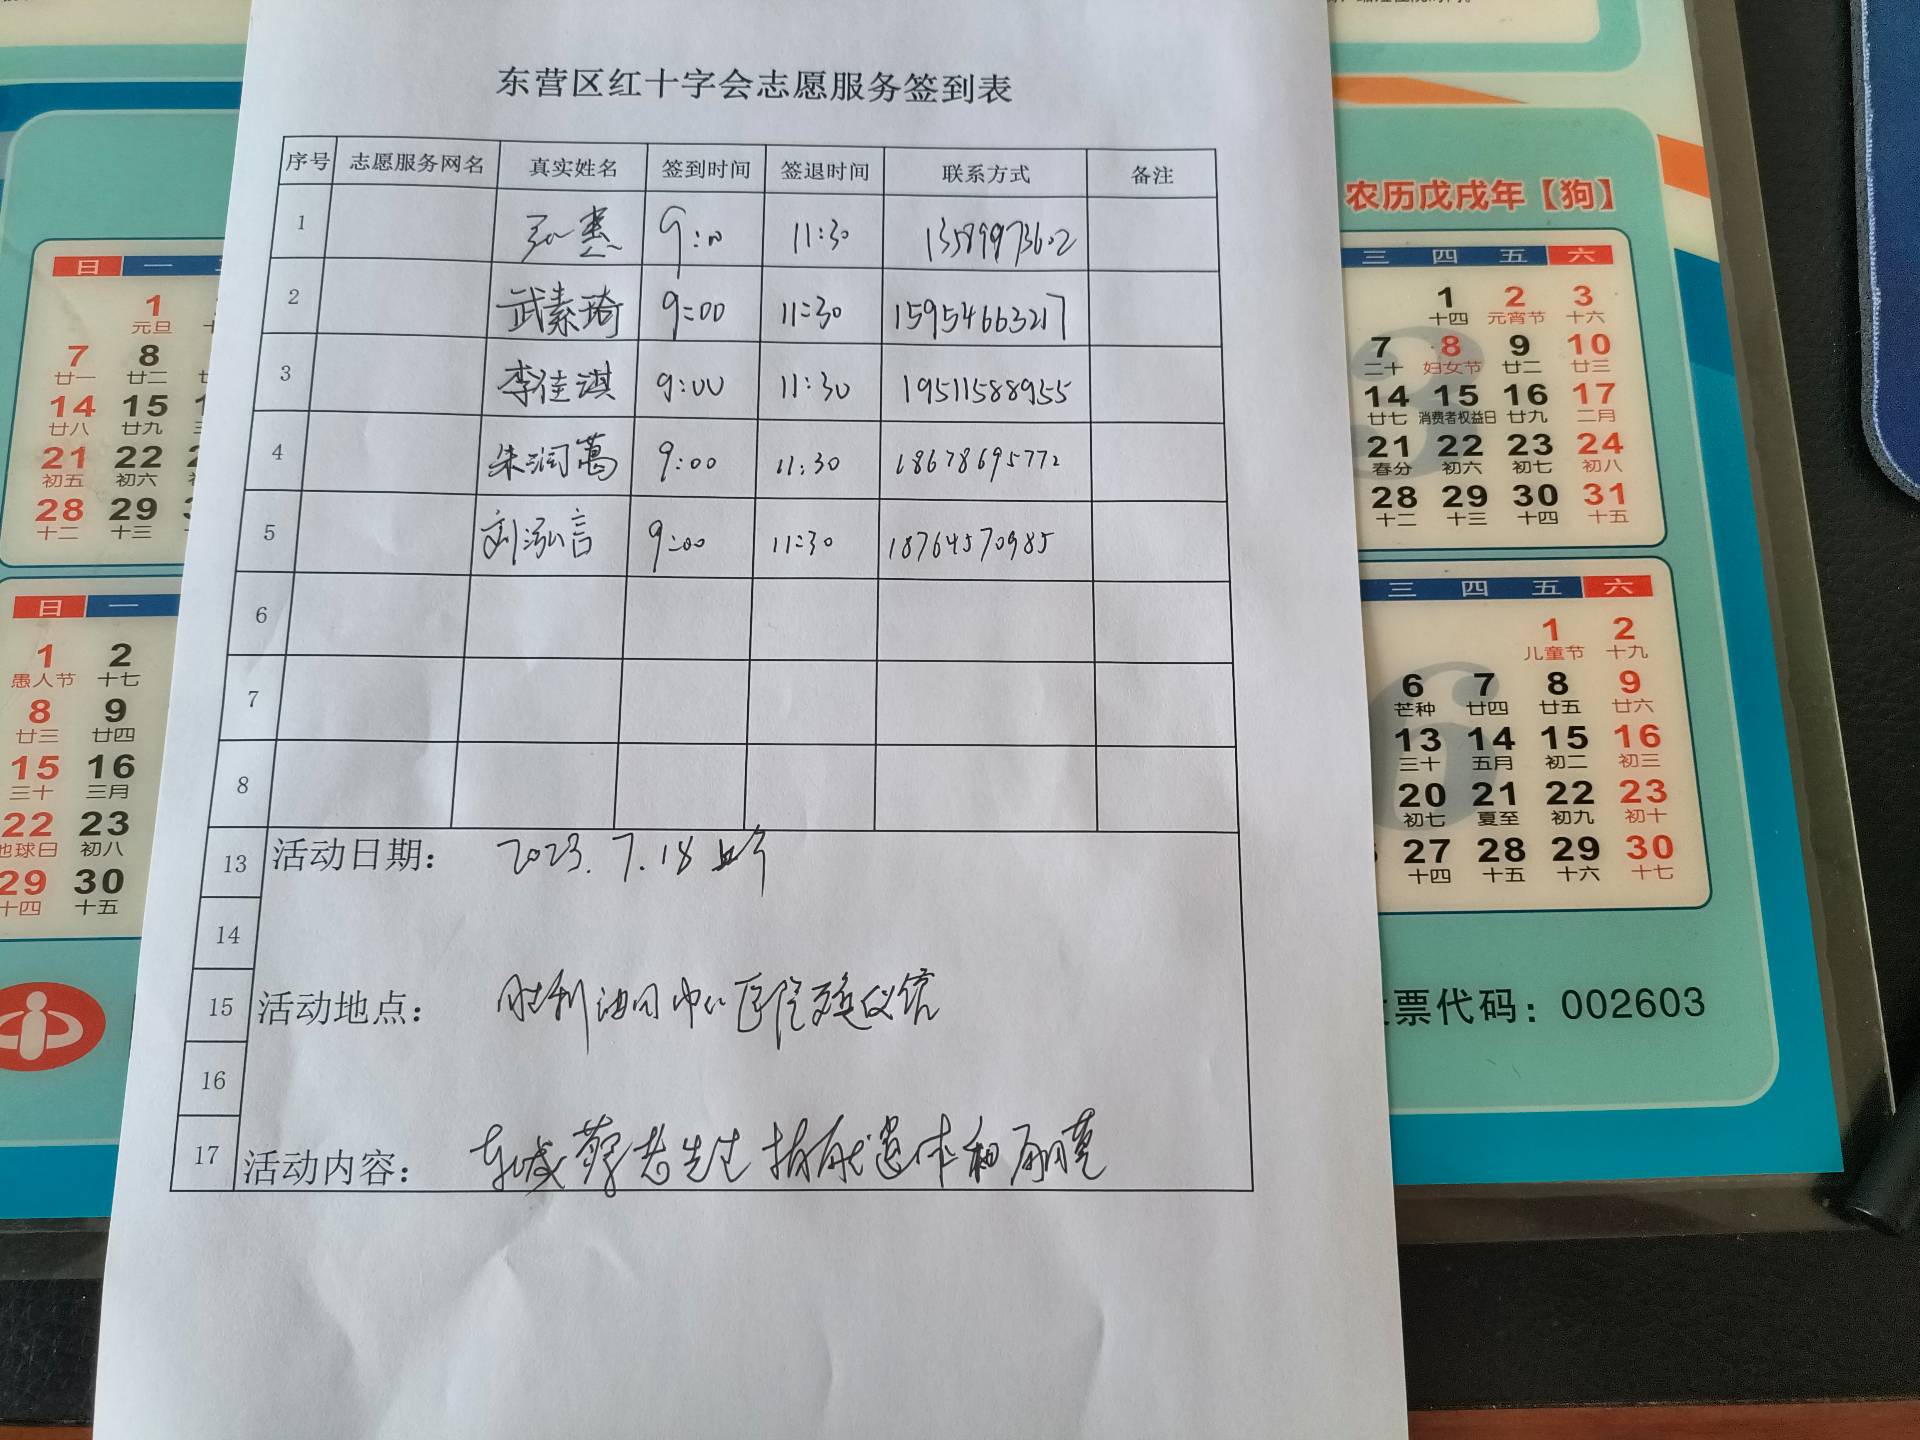 东营区红十字会志愿服务签到表
序号 志愿服务网名 真实姓名 签到时间 签退时间 联系方式 备注
1 9:00 11:30 13589973602
2 武素琦 9:00 11:30 15954663217
3 李佳淇 9:00 11:30 19511588955
4 朱润萬 9:00 11:30 18678695772
5 刘泓言 9:00 11:30 18764570985
6
7
8
13 活动日期： 2023.7.18 上午
14
15 活动地点： 胜利油田中心医院殡仪馆
16
17 活动内容： 东城蔡老先生捐献遗体和角膜
农历戊戌年【狗】
日 一
1
元旦
7 8
廿一 廿二
14 15
廿八 廿九
21 22
初五 初六
28 29
十二 十三
日 一
1 2
愚人节 十七
8 9
廿三 廿四
15 16
三十 三月
22 23
地球日 初八
29 30
十四 十五
三 四 五 六
1 2 3
十四 元宵节 十六
7 8 9 10
二十 妇女节 廿二 廿三
14 15 16 17
廿七 消费者权益日 廿九 二月
21 22 23 24
春分 初六 初七 初八
28 29 30 31
十二 十三 十四 十五
三 四 五 六
1 2
儿童节 十九
6 7 8 9
芒种 廿四 廿五 廿六
13 14 15 16
三十 五月 初二 初三
20 21 22 23
初七 夏至 初九 初十
27 28 29 30
十四 十五 十六 十七
票代码：002603